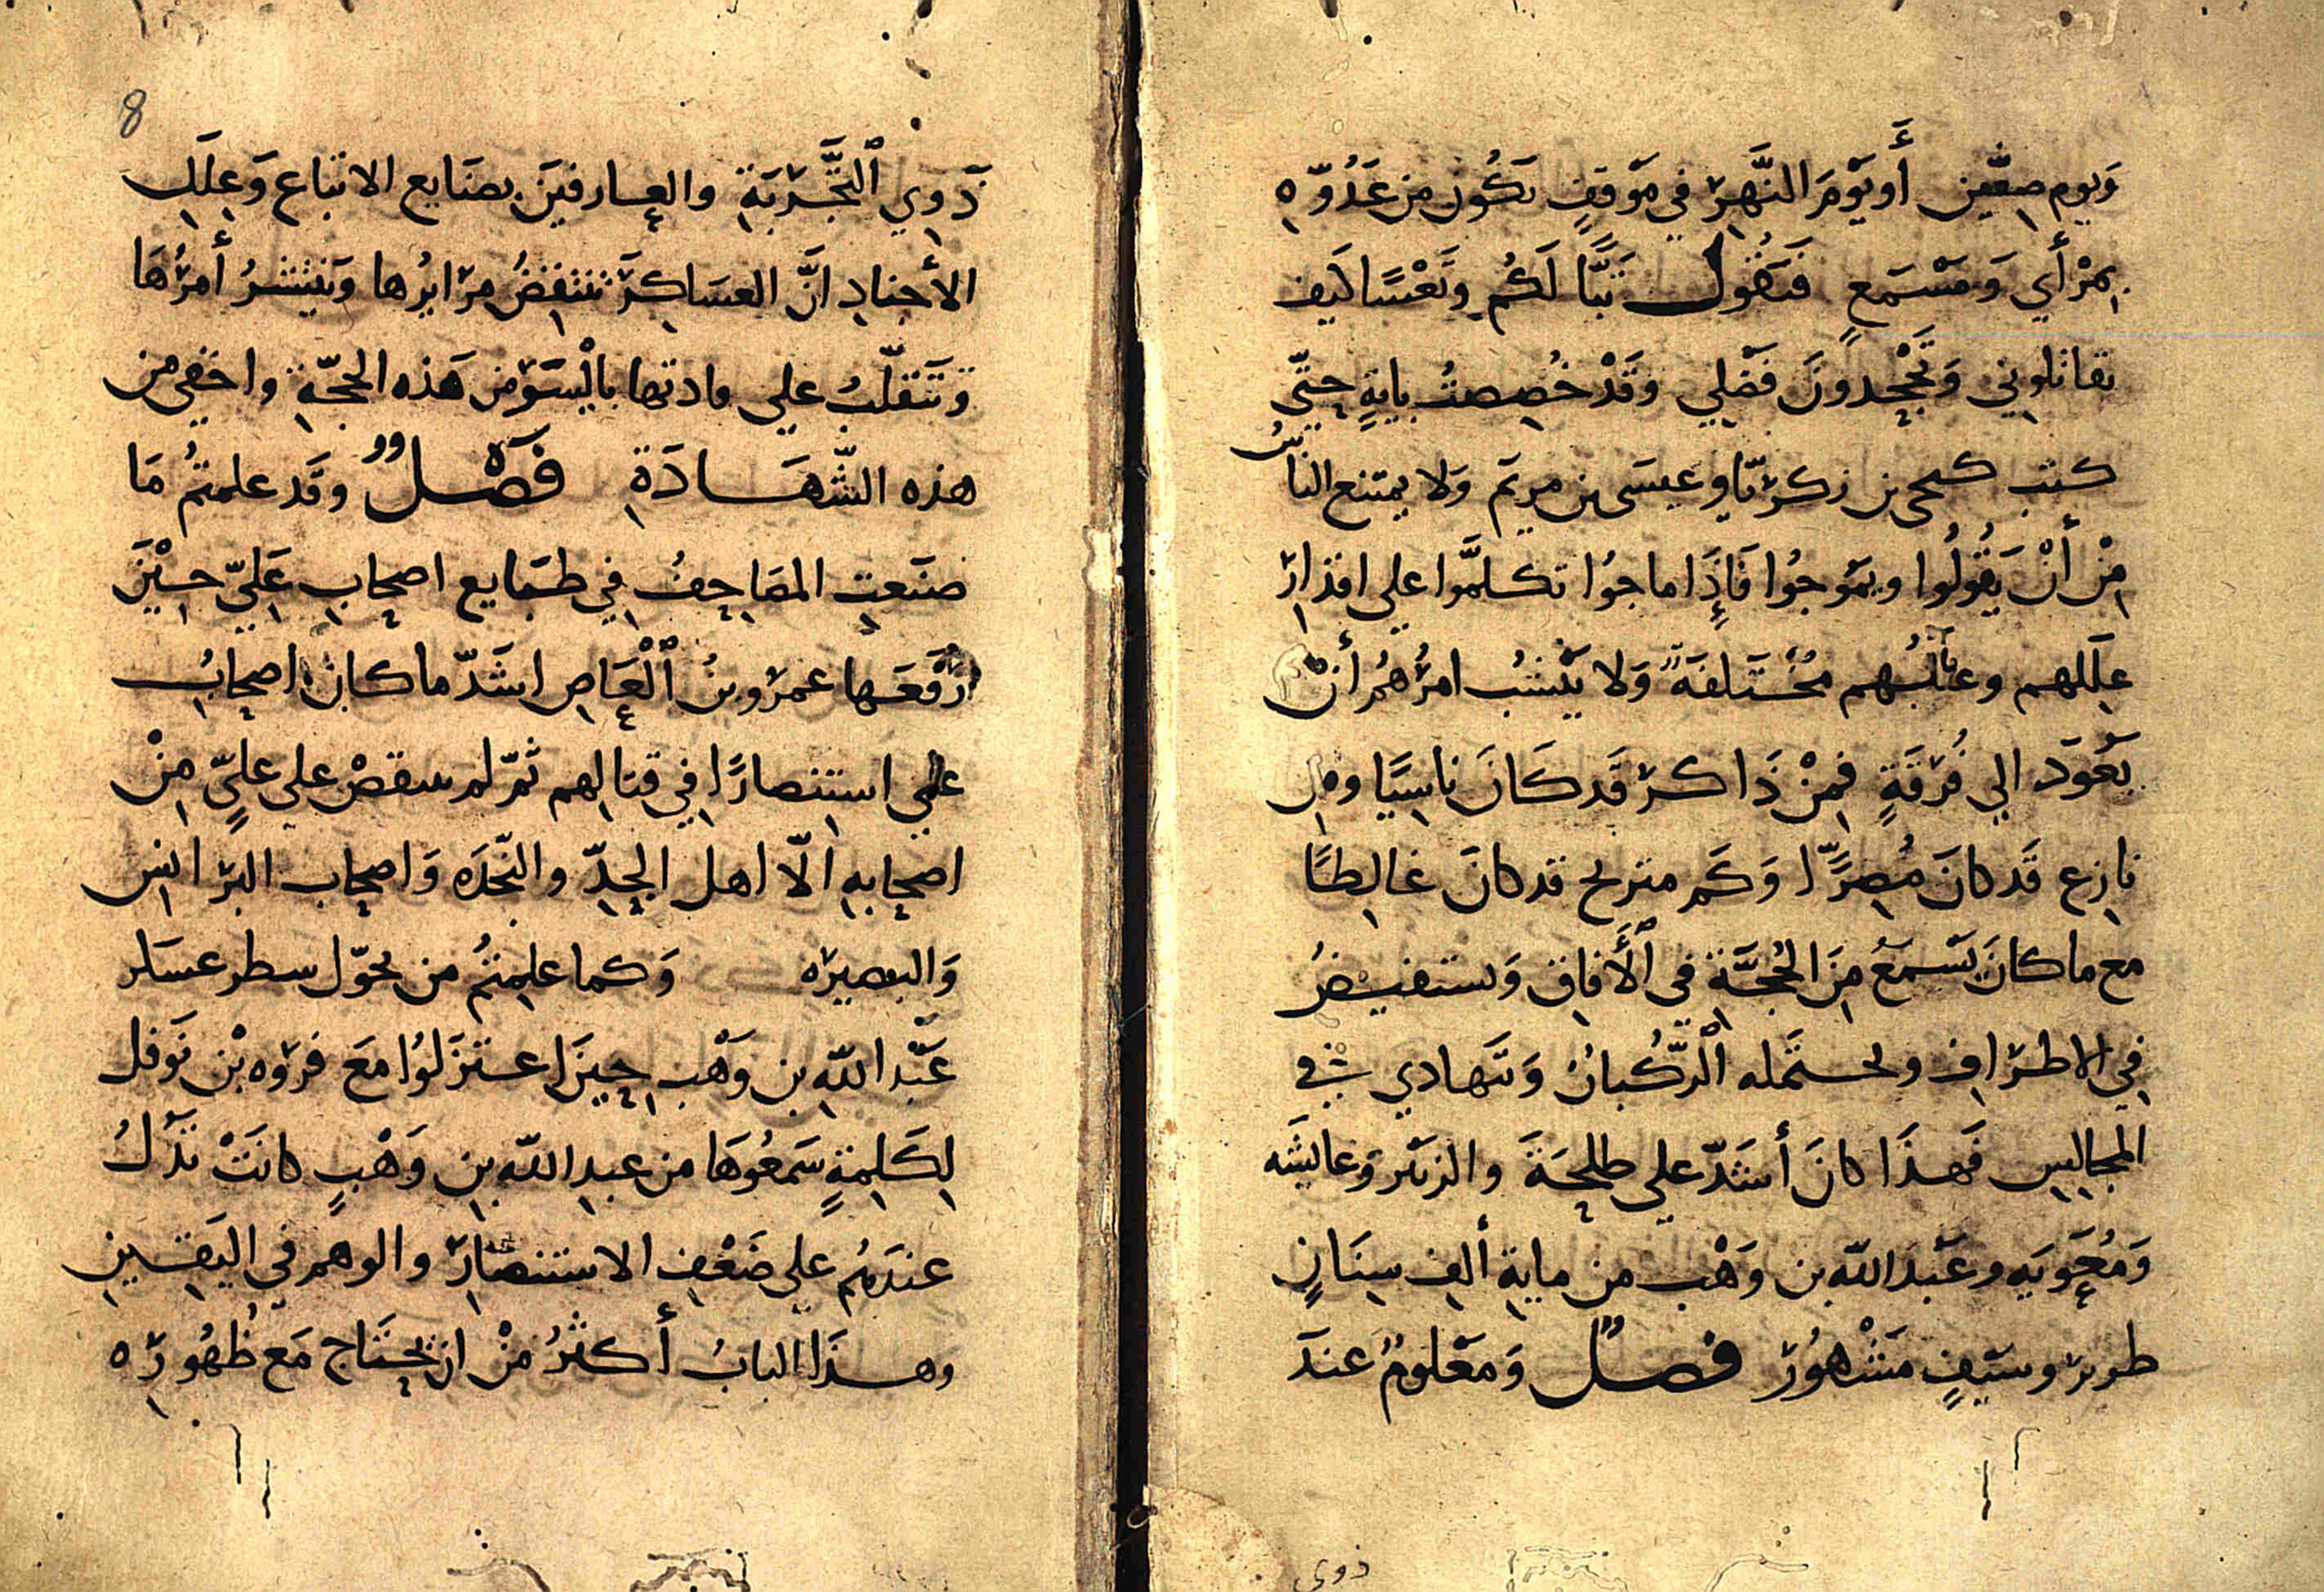 وَيوم صِفّين أَو يَوْمَ النَّهرِ في مَوْقفٍ تكُون من عَدُوّه
بمرْأي وَمَسْمَعٍ فَتقُول تَبًّا لَكُم وتَعْسًا كَيف
تقاتلوني وَتَجْحدونَ فَضْلي وقَدْ خُصِصتُ بايةٍ حتّي
كنت كيحيى بن زكريّا وعيسَى بن مريَم وَلا يمتنع الناسُ
مِنْ أنْ يَقُولُوا ويمَوجُوا فَإِذَا ماجوُا تكلمَّوا علي اقدار
عِلَلهم وعللهم مُخْتَلفَةً وَلا يَنْشبُ امرُهُم أنْ
يَعُودَ الي فُرقَةٍ فمِنْ ذَاكر قَد كَانَ ناسِيًا ومن
نازع قَد كانَ مُصِرًّا وَكَم مترنح قد كانَ غالِطًا
مع ما كانَ يَسْمَعُ مِنَ الحُجَّةِ في ٱلْأَفاق وَتستفيضُ
في الاطراف وتحتمله ٱلرُّكبانُ وَتَهادي في
المجالِس فَهذَا كانَ أَشَدّ علي طلحَةَ والزبَير وَعايشَه
وَمُعَويَه وعَبْدَ اللّه بن وَهْب من مايةِ ألفِ سِنَانٍ
طرير وسَيفٍ مَشْهوُر فصلٌ وَمعْلومٌ عندَ
ذوي
8
ذَوِي ٱلتَّجْربَةِ والعارفينَ بصنَايع الاتباع وَعِلَلِ
الأجنادِ انَّ العسَاكِرَ تنتقِضُ مرَايرُها وَينتشرُ أمرُهَا
وَتَنقلّبُ علي قادتها بايْسَرَ من هَذه الحجّةِ واخفي من
هذه الشّهَادَةِ فَصْلٌ وقَد علمتُم مَا
صنَعتِ المصَاحفُ في طبَايع اصحابِ عَليّ حِيْنَ
رَفَعَها عمرُو بنُ ٱلْعَاصِ اشَدّ ما كان اصحابُ
علي استنصارًا في قتالِهم ثمّ لم ينتقضْ علي عليٍّ مِنْ
اصحابهِ الّا اهل الجِدِّ والنّجدَه وَاصحاب البرَانس
وَالبصيرَه وَكما علِمتُم من تحوّل شطر عسكر
عَبْد اللّه بن وَهْب حِينَ اعتزَلوُا مَعَ فروَه بْن نَوفل
لِكَلِمةٍ سَمعُوهَا من عبدِ اللّه بنِ وَهْبٍ كانَتْ تدَلُ
عندَهُم علي ضَعْفِ الاستنصارِ والوهم في اليَقينِ
وهذَا البابُ أكثرُ مِنْ ان يحتَاج مَع ظُهُورِه